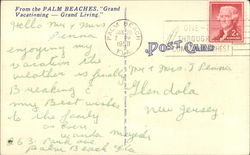 From the PALM BEACHES, "Grand
Vacationing — Grand Living."
Hello Mr & Mrs
enjoying my
vacation the
weather is finally
Breaking &
my Best wishes
to the family
as ever
wanda
Park ave
Palm Beach Fla
PALM BEACH
FLA.
POST CARD
THROUGH
2¢
Mr & Mrs. T.
Glendola
New Jersey.